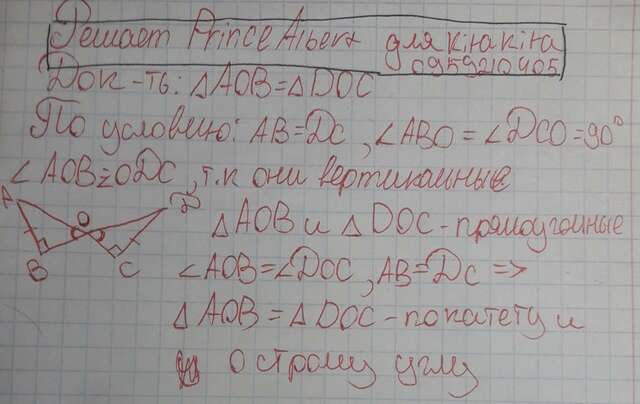 Решает PrinceAlbert для kirakira
0959210405
Док-ть: △AOB=△DOC
По условию: AB=Dc, ∠ABO=∠DCO=90°
∠AOB=ODC, т.к они вертикальные
A O D B C
△AOB и △DOC-прямоугольные
∠AOB=∠DOC, AB=Dc =>
△AOB=△DOC-по катету и
острому углу